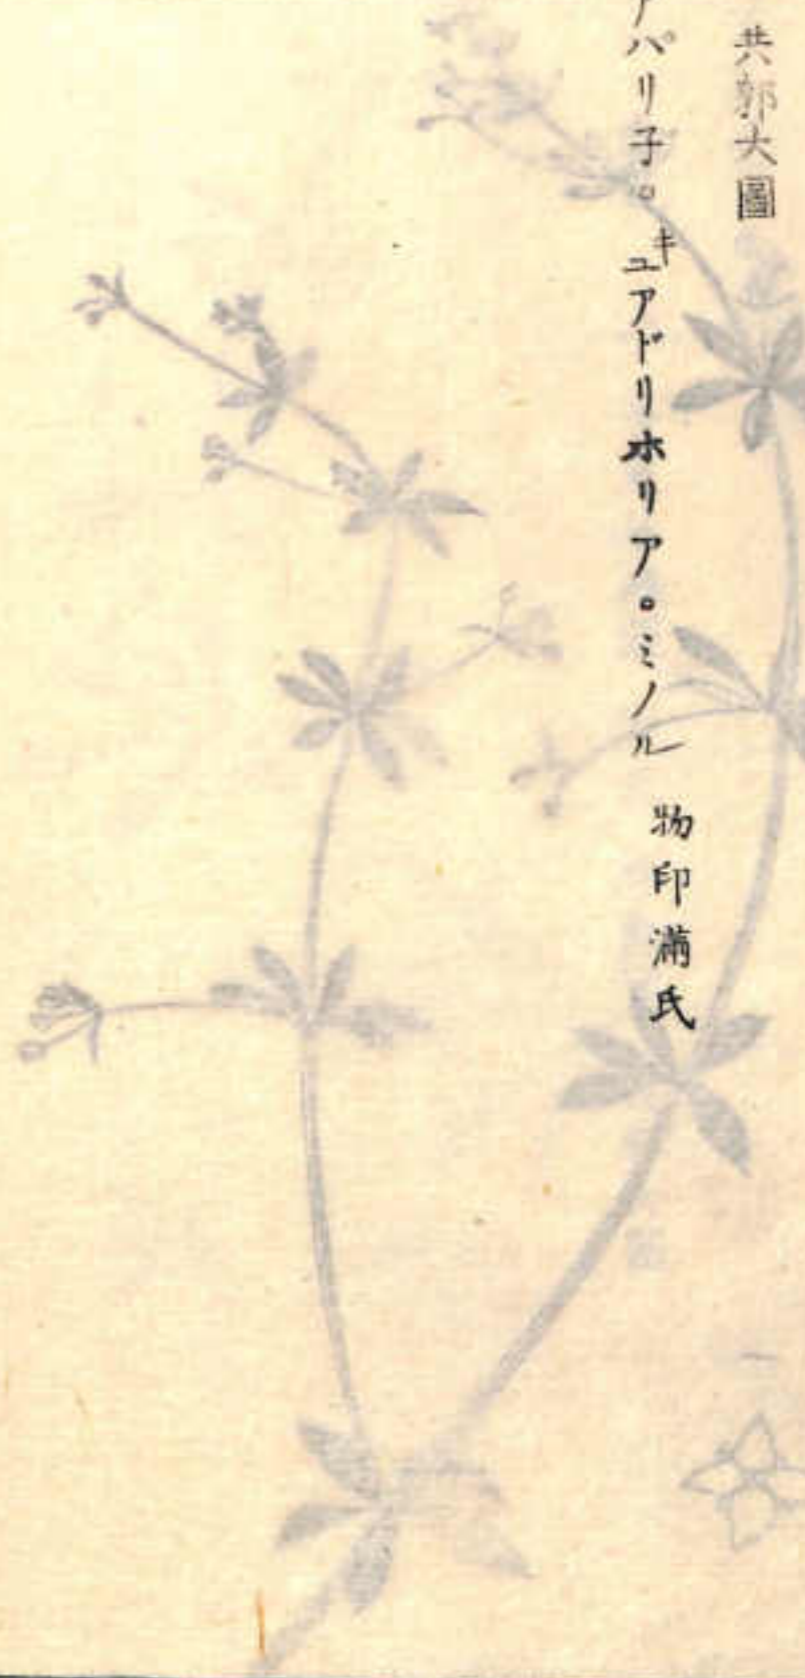 共郭大圖
アパリ子。キユアドリホリア。ミノル 物印滿氏